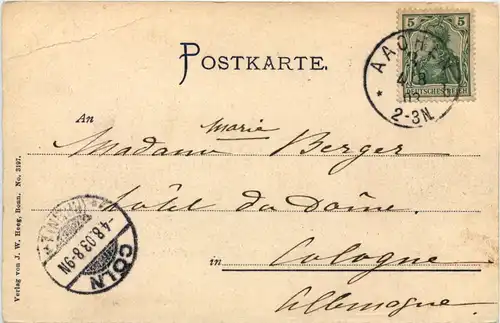 5 5
DEUTSCHES REICH
POSTKARTE.
AACH
4/8
03
2-3N.
An
Marie
Madame Berger
hôtel du Dôme
in Cologne
Allemagne.
CÖLN
-4.8.03.8-9N
Verlag von J. W. Heeg, Bonn. No. 3197.